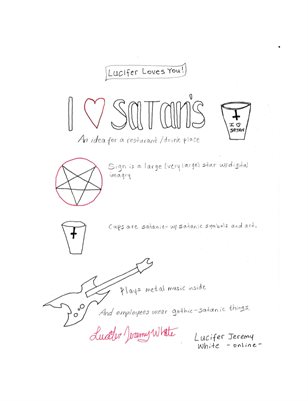 Lucifer Loves You!
I ♡ Satan's
I ♡
SATAN
An idea for a resturant / drink place
Sign is a large (very large) star w/digital
imagry
Cups are satanic w/ satanic symbols and art.
Plays metal music inside
And employees wear gothic-satanic things
Lucifer Jeremy White
Lucifer Jeremy
White -online-